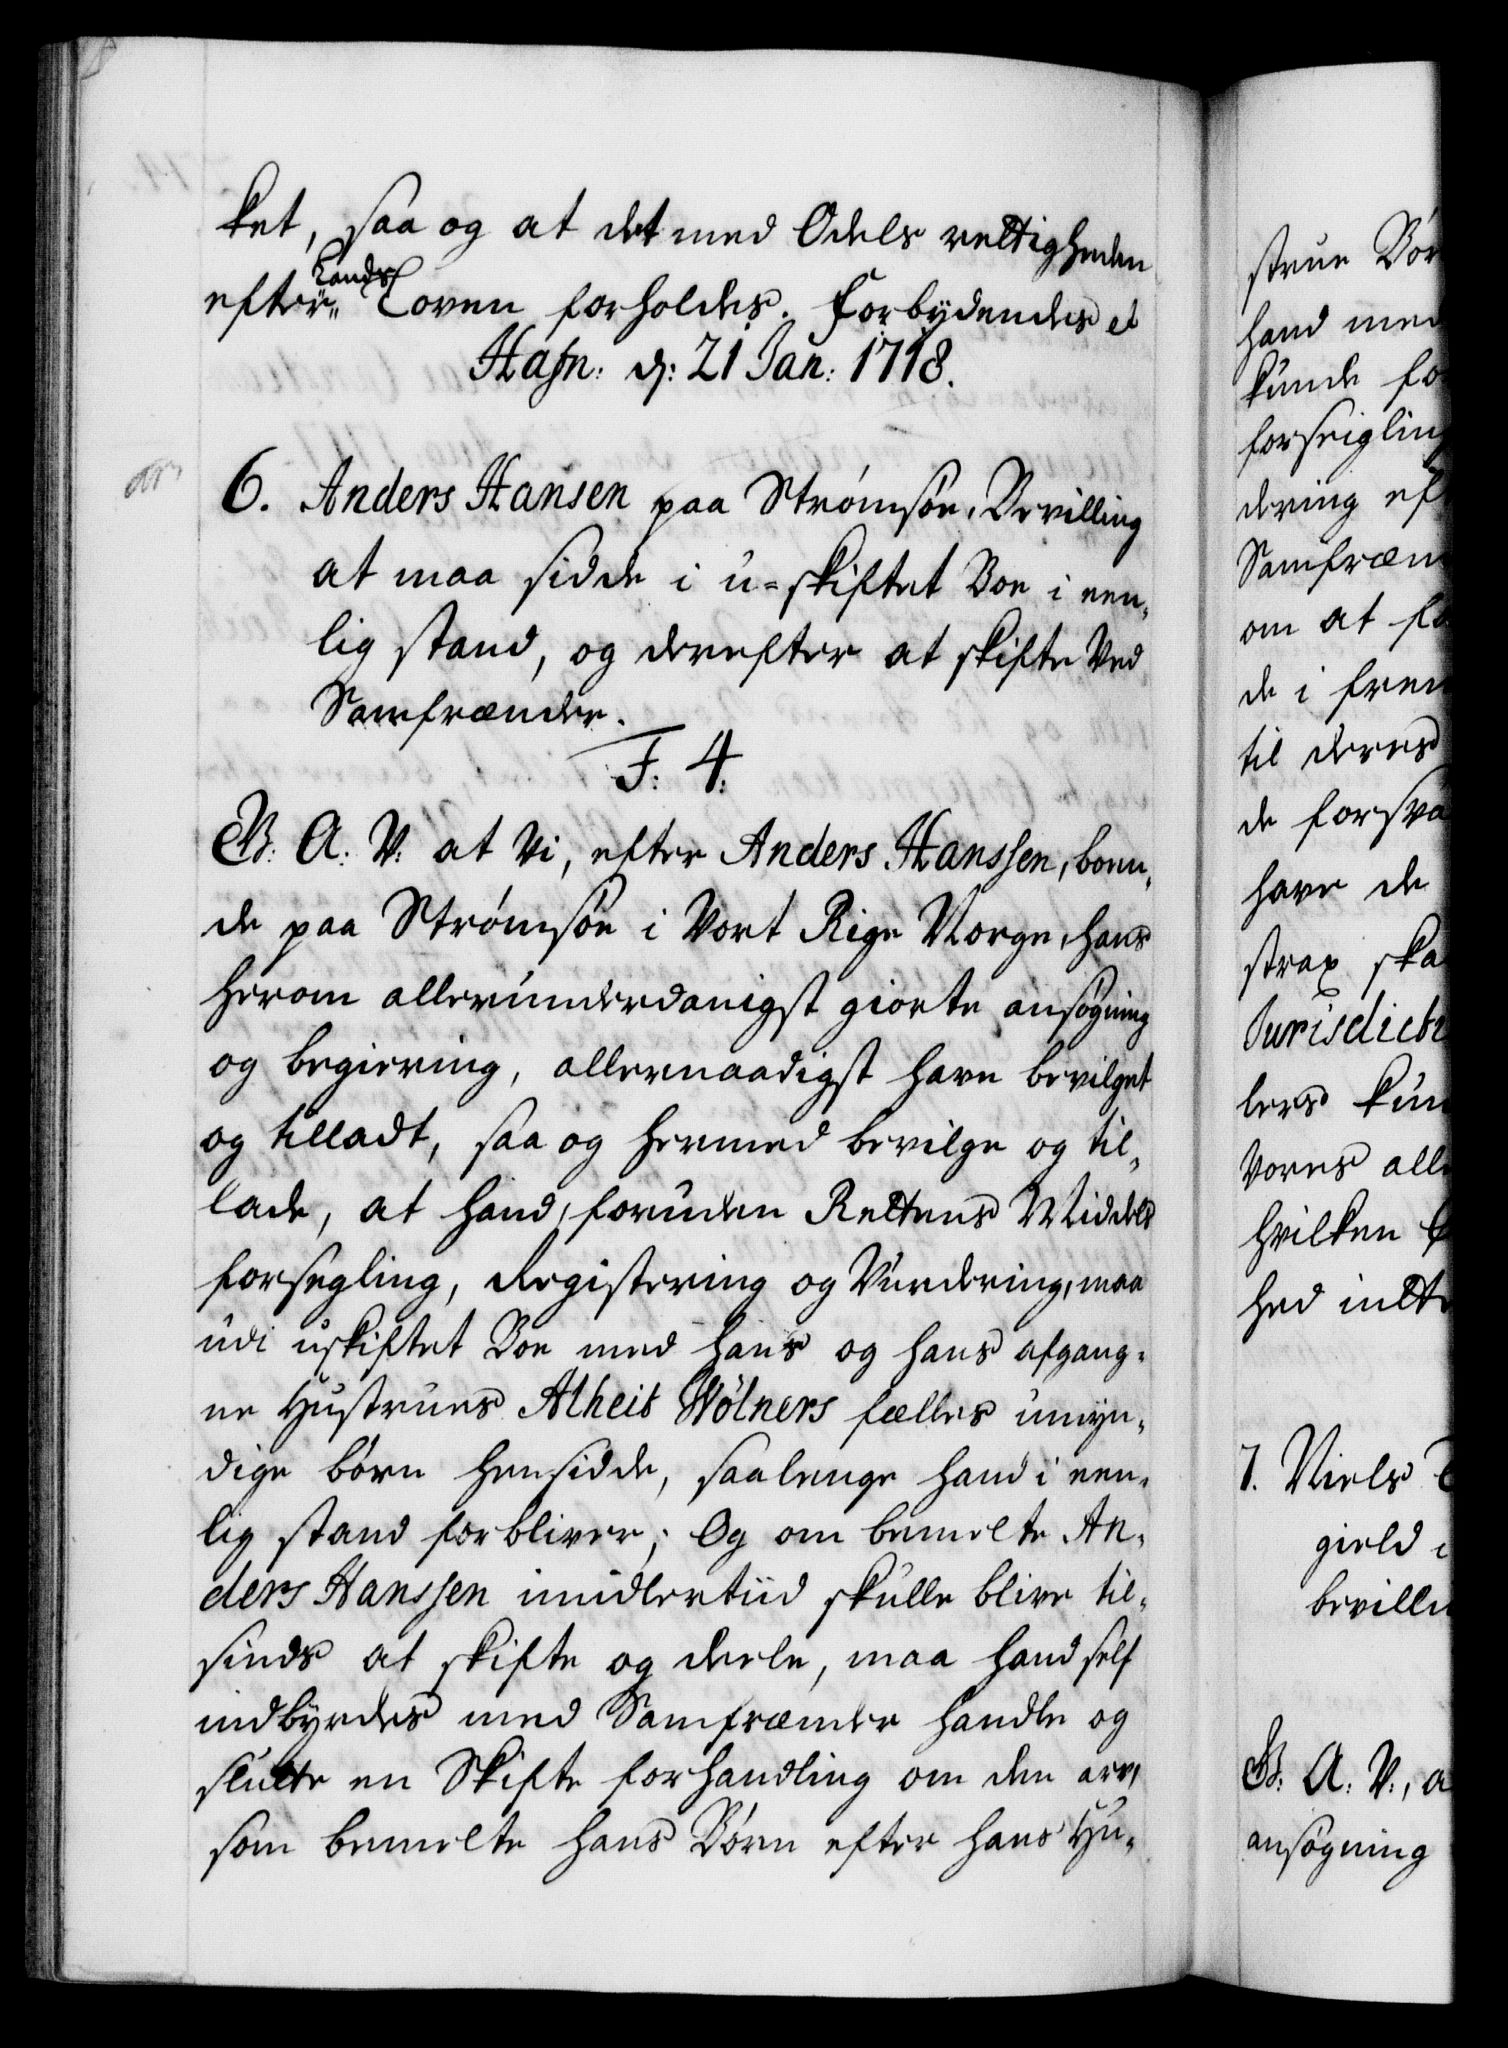 ket, saa og at det med Odels rettigheden
efter Lands Loven forholdes. Forbydendes et
Hafn: d: 21 Jan: 1718.
6. Anders Hansen paa Strømsøe, Bevilling
at maa sidde i u-skiftet Boe i een-
lig stand, og derefter at skifte Ved
Samfrænder.
F: 4:
G: A: V: at Vi, efter Anders Hanssen, boen-
de paa Strømsøe i Vort Rige Norge, hans
herom allerunderdanigst giorte ansøgning
og begiering, allernaadigst have bevilget
og tilladt, saa og hermed bevilge og til-
lade, at hand, foruden Rettens Middels
forsegling, Registering og Vurdering, maa
udi uskiftet Boe med hans og hans afgang-
ne Hustrues Alheit Wölners fælles umyn-
dige børn hensidde, saalenge hand i een-
lig stand forbliver; Og om bemelte An-
ders Hanssen imidlertiid skulle blive til-
sinds at skifte og deele, maa hand self
indbyrdes med Samfrænder handle og
slutte en Skifte forhandling om den arv,
som bemelte hans Børn efter hans Hu-
strue Bør
hand med
kunde fo
forseigling
dering ef
Samfræn
om at fo
de i frem
til deres
de forsva
have de
strax ska
Jurisdicti
lers kun
Vores alle
hvilken
hed indte
7. Niels
gield
bevilli
G: A: V:, a
ansøgning